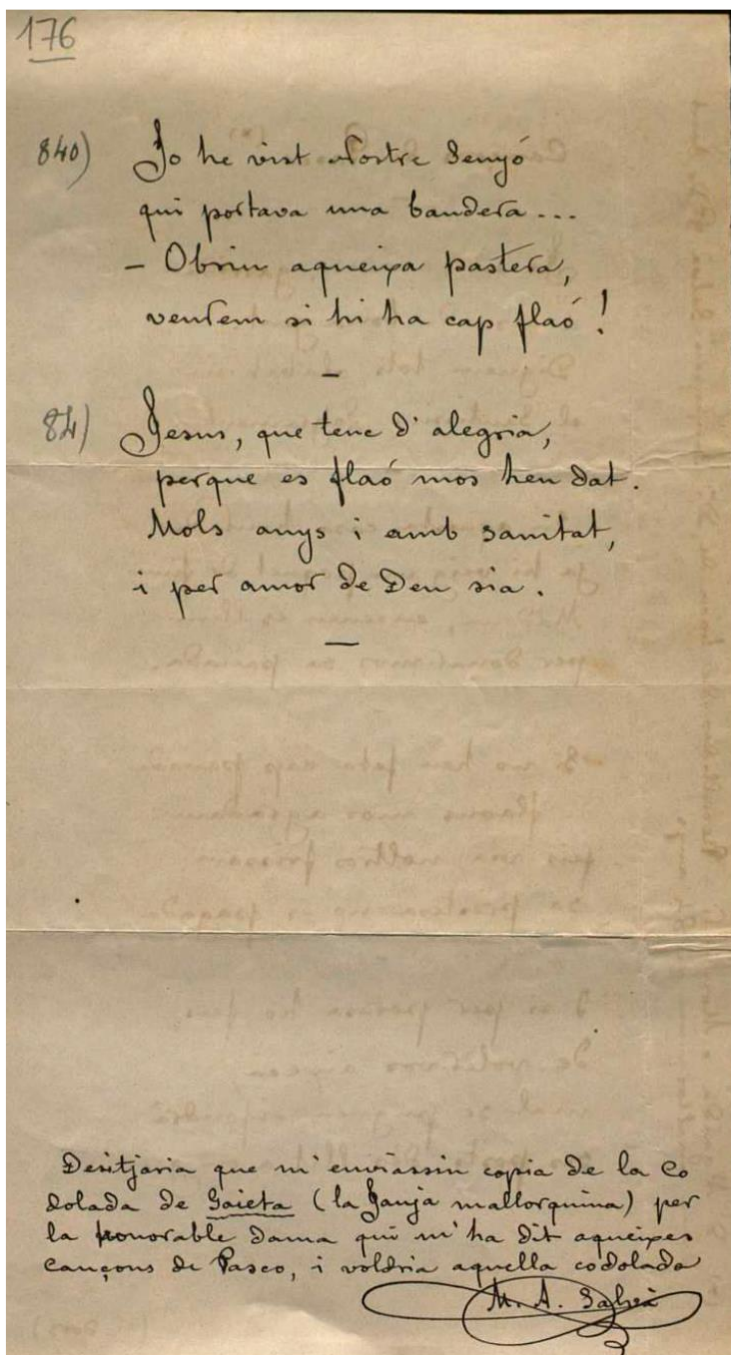 176
840) Jo he vist Nostre Senyó
qui portava una bandera...
- Obriu aqueixa pastera,
veurem si hi ha cap flaó!
84) Jesus, que tenc d'alegria,
perque es flaó mos heu dat.
Mols anys i amb sanitat,
i per amor de Deu sia.
Desitjaria que m'enviassin copia de la Co
dolada de Gaieta (la Ganja mallorquina) per
la honorable dama qui m'ha dit aqueixes
cançons de Pasco, i voldria aquella codolada
M. A. Salvà